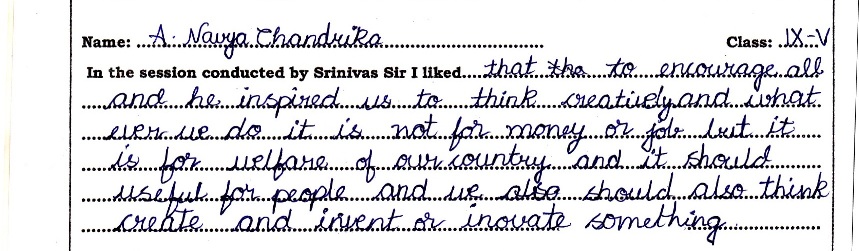 Name: A. Navya Chandrika Class: IX-V
In the session conducted by Srinivas Sir I liked that tha to encourage all
and he inspired us to think creatively and what
ever we do it is not for money or job but it
is for welfare of our country and it should
useful for people and we also should also think
create and invent or inovate something